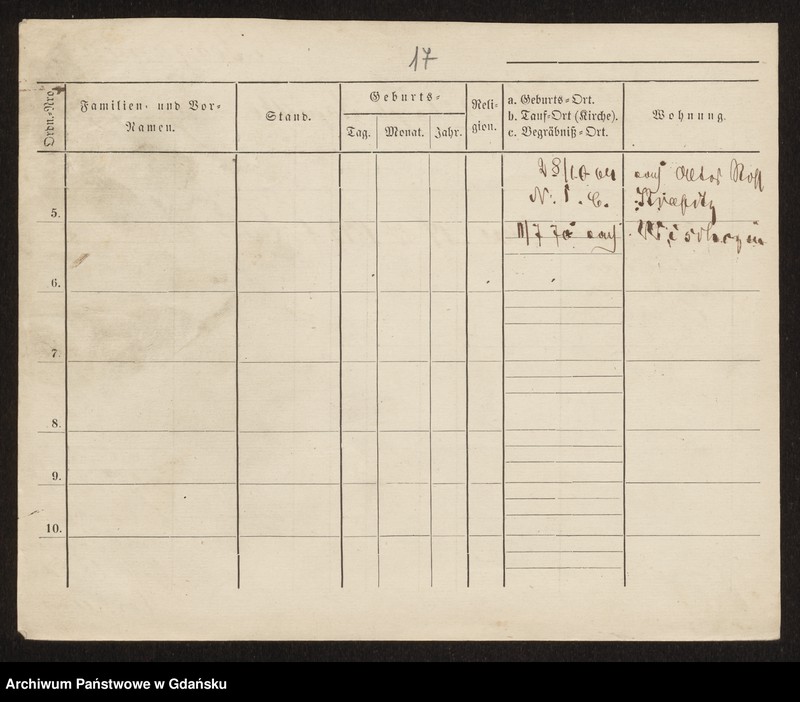 17
Ordn.-Nro.
Familien- und Vor-
Namen.
Stand.
Geburts-
Tag.
Monat.
Jahr.
Reli-
gion.
a. Geburts-Ort.
b. Tauf-Ort (Kirche).
c. Begräbniß-Ort.
Wohnung.
28/10 64
N. 5. C.
5.
11/7 70
6.
7.
8.
9.
10.
Archiwum Państwowe w Gdańsku